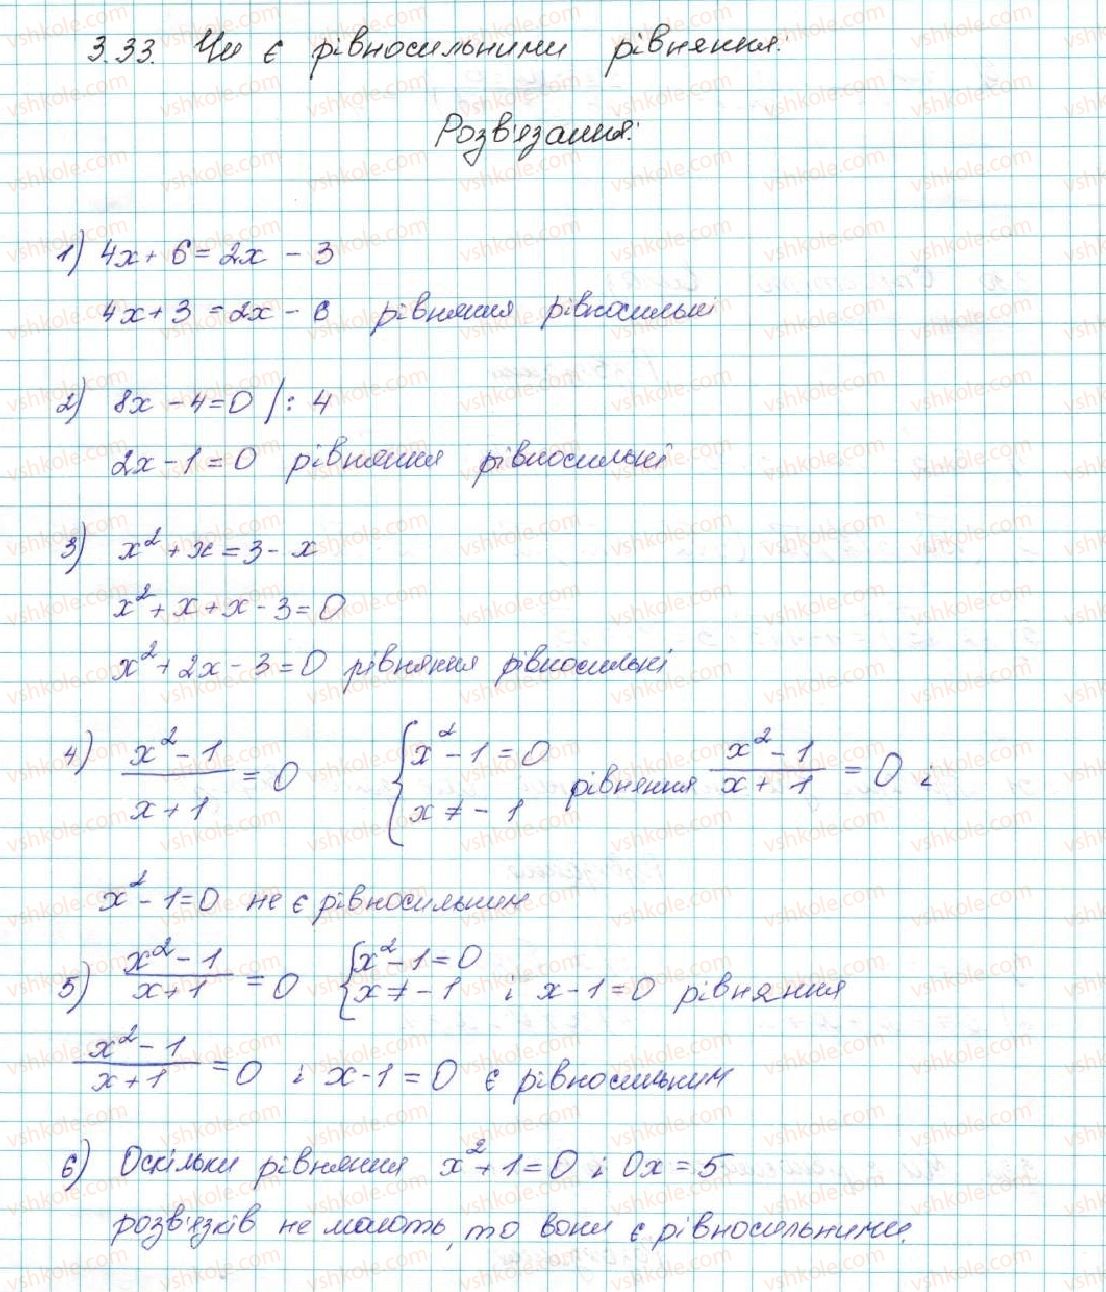 3.33. Чи є рівносильними рівняння:
Розв'язання:
1) 4x + 6 = 2x - 3
4x + 3 = 2x - 6 рівняння рівносильні
2) 8x - 4 = 0 /: 4
2x - 1 = 0 рівняння рівносильні
3) x² + x = 3 - x
x² + x + x - 3 = 0
x² + 2x - 3 = 0 рівняння рівносильні
4) (x² - 1)/(x + 1) = 0 { x² - 1 = 0; x ≠ -1 рівняння (x² - 1)/(x + 1) = 0 і
x² - 1 = 0 не є рівносильним
5) (x² - 1)/(x + 1) = 0 { x² - 1 = 0; x ≠ -1 і x - 1 = 0 рівняння
(x² - 1)/(x + 1) = 0 і x - 1 = 0 є рівносильним
6) Оскільки рівняння x² + 1 = 0 і 0x = 5
розв'язків не мають, то вони є рівносильними.